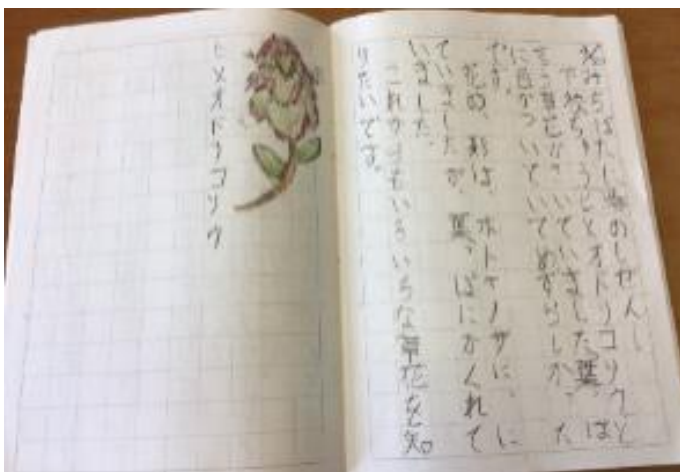 みちばた 春のしぜん
下校ちゅうヒメオドリコソウと
言う草花がさいていました。葉っぱ
に色がついていてめずらしかった
です。
花の、形は、ホトケノザに、に
ていましたが、葉っぱにかくれて
いました。
これからもいろいろな草花を知
りたいです。
ヒメオドリコソウ